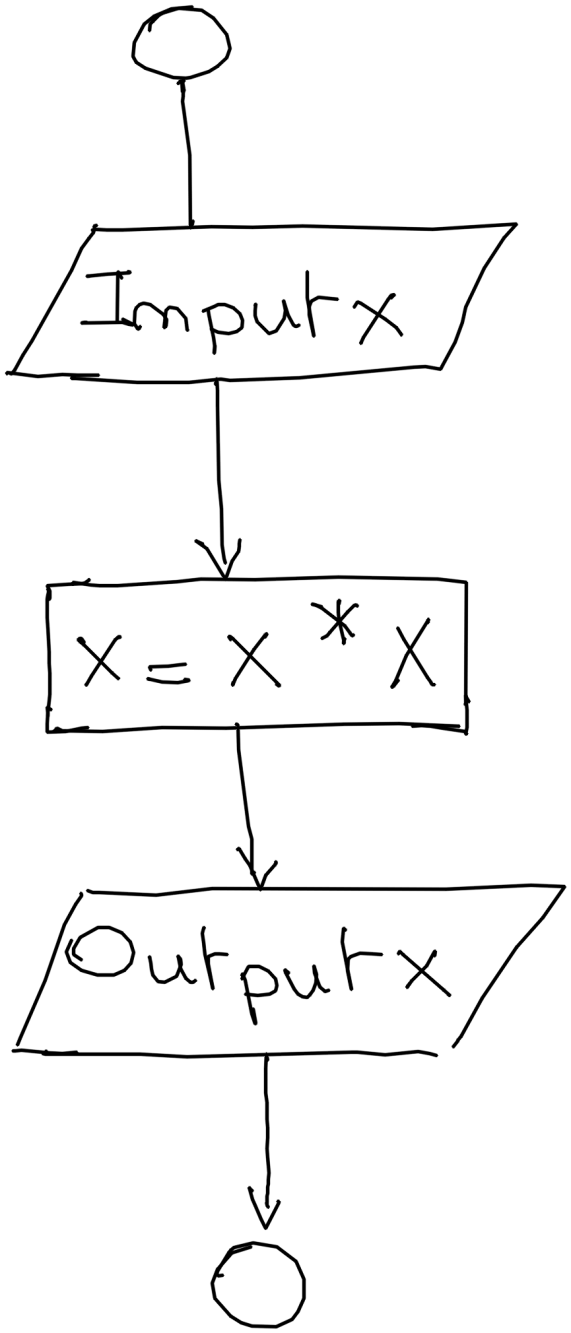 Input x
X = X * X
Output x